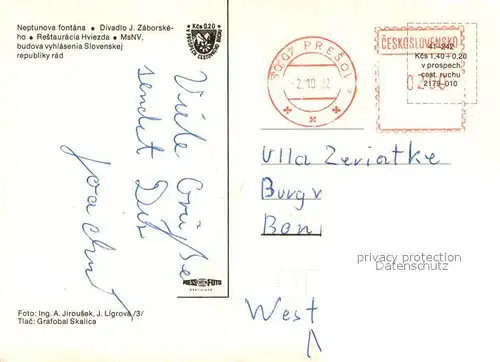 Neptunova fontána • Divadlo J. Záborské-
ho • Reštaurácia Hviezda • MsNV,
budova vyhlásenia Slovenskej
republiky rád
Kčs 0.20
Viele Grüße
sendet Dir
Joachim
PRESSFOTO
Foto: Ing. A. Jiroušek, J. Ligrová /3/
Tlač: Grafobal Skalica
PREŠOV
-2.10.
ČESKOSLOVENSKO
41-242
Kčs 1,40 + 0,20
v prospech
cest. ruchu
2179-010
Ulla
Burgv
Bon
West
privacy protection
Datenschutz